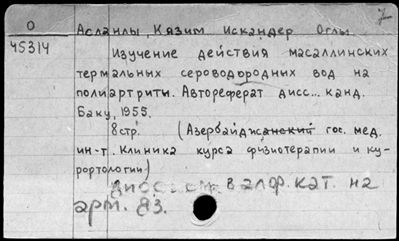 О
45314
Асланлы, Кязим Искандер Оглы.
Изучение действия масаллинских
термальных сероводородных вод на
полиартриты. Автореферат дисс... канд.
Баку, 1955.
8стр. (Азербайджанский гос. мед.
ин-т. Клиника курса физиотерапии и ку-
рортологии)
дисс. см. в алф. кат. на
арт. 83.